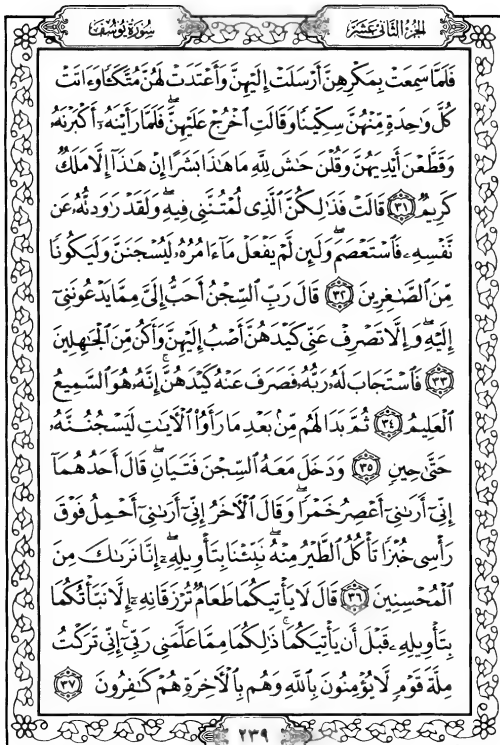 الجزء الثاني عشر
سورة يوسف
فَلَمَّا سَمِعَتْ بِمَكْرِهِنَّ أَرْسَلَتْ إِلَيْهِنَّ وَأَعْتَدَتْ لَهُنَّ مُتَّكَـًٔا وَءَاتَتْ
كُلَّ وَٰحِدَةٍ مِّنْهُنَّ سِكِّينًا وَقَالَتِ ٱخْرُجْ عَلَيْهِنَّ ۖ فَلَمَّا رَأَيْنَهُۥٓ أَكْبَرْنَهُۥ
وَقَطَّعْنَ أَيْدِيَهُنَّ وَقُلْنَ حَـٰشَ لِلَّهِ مَا هَـٰذَا بَشَرًا إِنْ هَـٰذَآ إِلَّا مَلَكٌ
كَرِيمٌ ٣١ قَالَتْ فَذَٰلِكُنَّ ٱلَّذِى لُمْتُنَّنِى فِيهِ ۖ وَلَقَدْ رَٰوَدتُّهُۥ عَن
نَّفْسِهِۦ فَٱسْتَعْصَمَ ۖ وَلَئِن لَّمْ يَفْعَلْ مَآ ءَامُرُهُۥ لَيُسْجَنَنَّ وَلَيَكُونًا
مِّنَ ٱلصَّـٰغِرِينَ ٣٢ قَالَ رَبِّ ٱلسِّجْنُ أَحَبُّ إِلَىَّ مِمَّا يَدْعُونَنِىٓ
إِلَيْهِ ۖ وَإِلَّا تَصْرِفْ عَنِّى كَيْدَهُنَّ أَصْبُ إِلَيْهِنَّ وَأَكُن مِّنَ ٱلْجَـٰهِلِينَ
٣٣ فَٱسْتَجَابَ لَهُۥ رَبُّهُۥ فَصَرَفَ عَنْهُ كَيْدَهُنَّ ۚ إِنَّهُۥ هُوَ ٱلسَّمِيعُ
ٱلْعَلِيمُ ٣٤ ثُمَّ بَدَا لَهُم مِّنۢ بَعْدِ مَا رَأَوُا۟ ٱلْـَٔايَـٰتِ لَيَسْجُنُنَّهُۥ
حَتَّىٰ حِينٍ ٣٥ وَدَخَلَ مَعَهُ ٱلسِّجْنَ فَتَيَانِ ۖ قَالَ أَحَدُهُمَآ
إِنِّىٓ أَرَىٰنِىٓ أَعْصِرُ خَمْرًا ۖ وَقَالَ ٱلْـَٔاخَرُ إِنِّىٓ أَرَىٰنِىٓ أَحْمِلُ فَوْقَ
رَأْسِى خُبْزًا تَأْكُلُ ٱلطَّيْرُ مِنْهُ ۖ نَبِّئْنَا بِتَأْوِيلِهِۦٓ ۖ إِنَّا نَرَىٰكَ مِنَ
ٱلْمُحْسِنِينَ ٣٦ قَالَ لَا يَأْتِيكُمَا طَعَامٌ تُرْزَقَانِهِۦٓ إِلَّا نَبَّأْتُكُمَا
بِتَأْوِيلِهِۦ قَبْلَ أَن يَأْتِيَكُمَا ۚ ذَٰلِكُمَا مِمَّا عَلَّمَنِى رَبِّىٓ ۚ إِنِّى تَرَكْتُ
مِلَّةَ قَوْمٍ لَّا يُؤْمِنُونَ بِٱللَّهِ وَهُم بِٱلْـَٔاخِرَةِ هُمْ كَـٰفِرُونَ ٣٧
٢٣٩